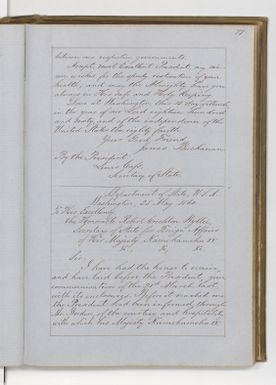 77
between our respective governments.
Accept, most Excellent President, my
wishes for the speedy restoration of your
health, and may the Almighty have you
always in His safe and Holy Keeping.
Done at Washington, this 15 day
in the year of our Lord eighteen hundred
and sixty, and of the independence of the
United States the eighty fourth.
Your Good Friend,
James Buchanan
By the President,
Lewis Cass,
Secretary of State.
Department of State, U.S.A.
Washington, 25 May 1860
To His Excellency
the Honorable Robert Crichton Wyllie,
Secretary of State for Foreign Affairs
of His Majesty Kamehameha IV
&c, &c, &c
Sir:
I have had the honor to receive,
and have laid before the President your
communication of the 21st March last,
with its enclosures. Before it reached me
the President had been informed, through
Mr. Borden, of the courtesy and hospitality
with which His Majesty Kamehameha IV